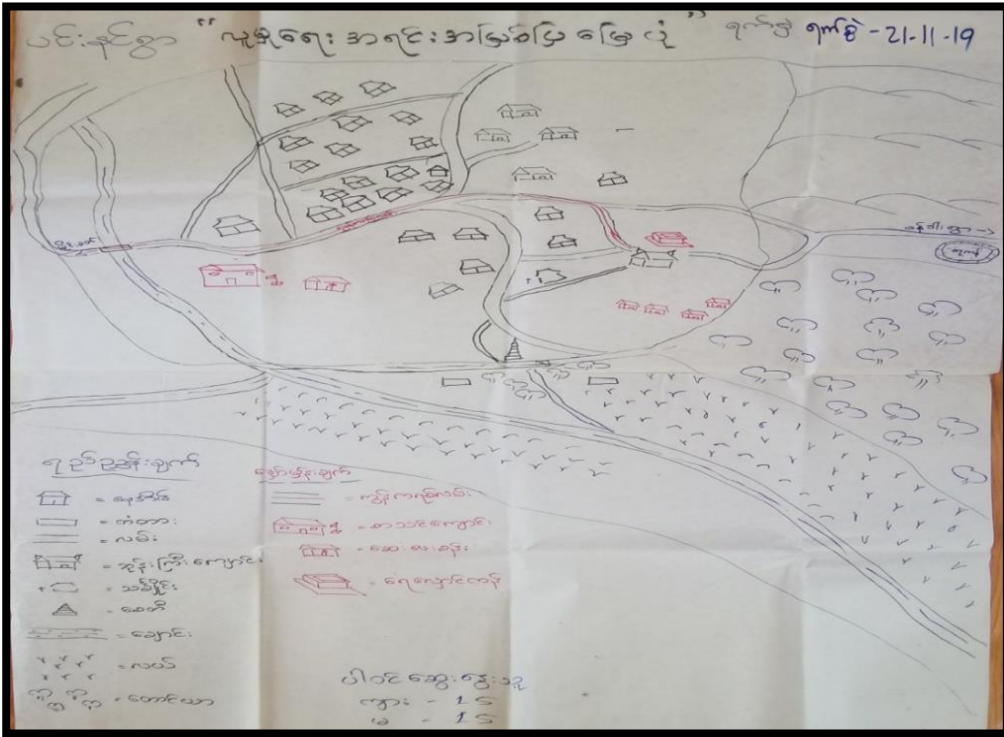 ပင်းနင်ရွာ "လူမှုရေး အရင်းအမြစ်ပြ မြေပုံ" ရက်စွဲ ရက်စွဲ - 21.11.19
ရည်ညွှန်းချက်
= နေအိမ်
= တံတား
= လမ်း
= ဘုန်းကြီးကျောင်း
= သင်္ချိုင်း
= စေတီ
= ချောင်း
= လယ်
= တောင်ယာ
မျှော်မှန်းချက်
= ကွန်ကရစ်လမ်း
= စာသင်ကျောင်း
= ဆေးပေးခန်း
= ရေလှောင်ကန်
ပါဝင်ဆွေးနွေးသူ
ကျား - 15
မ - 15